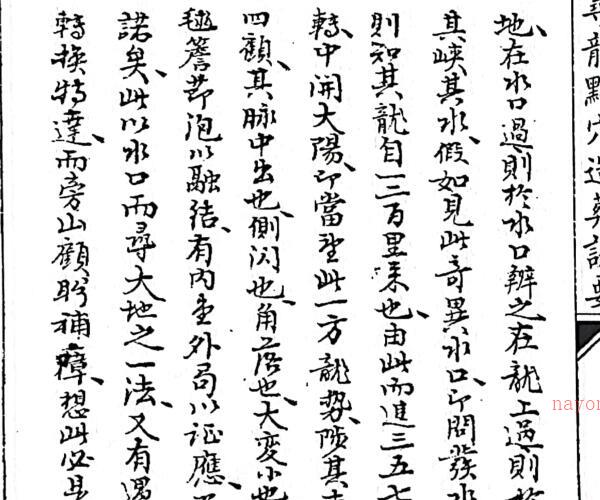 尋龍點穴造葬課要
地、在水口過則於水口辨之在龍上過則於
其峽其水、假如見此奇異水口即問發水
則知其龍自一二百里來也、由此而進三五七
轉、中開大陽、即當里此一方龍勢、陟其
四顧、其脉中出也、側闪也、角落也、大変小也
毬簷節泡以融結、有內堂外局以证應、
諾矣、此以水口而尋大地之一法、又有遇
轉換特達、而旁山顧盻補、想此必是
nayon